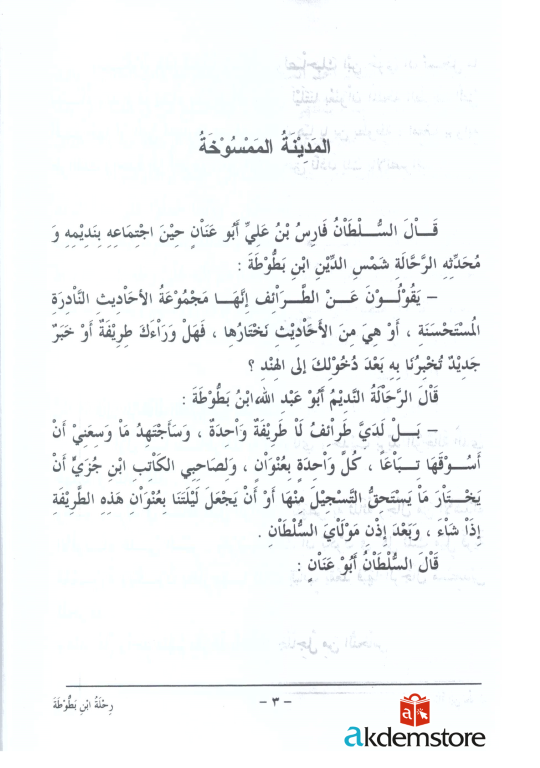 المَدِيْنَةُ المَمْسُوْخَةُ
قَــاْلَ السُّـلْطَاْنُ فَارِسُ بْنُ عَلِيٍّ أَبُو عَنَاْنٍ حِيْنَ اجْتِمَاعِهِ بِنَدِيْمِهِ وَ
مُحَدِّثِهِ الرَّحَّالَةِ شَمْسِ الدِّيْنِ ابْنِ بَطُّوْطَةَ :
– يَقُوْلُــوْنَ عَــنْ الطَّـرَائِفِ إِنَّهَــا مَجْمُوْعَةُ الأَحَادِيثِ النَّادِرَةِ
المُسْتَحْسَنَةِ ، أَوْ هِيَ مِنَ الأَحَاْدِيْثِ نَخْتَارُها ، فَهَلْ وَرَاْءَكَ طَرِيْفَةٌ أَوْ خَبَرٌ
جَدِيْدٌ تُخْبِرُنَا بِهِ بَعْدَ دُخُوْلِكَ إلى الهِنْدِ ؟
قَاْلَ الرَّحَاْلَةُ النَّدِيْمُ أَبُوْ عَبْدِ اللهِ ابْنُ بَطُّوْطَةَ :
– بَــلْ لَدَيَّ طَرَائِفُ لَاْ طَرِيْفَةٌ وَاْحِدَةٌ ، وَسَأَجْتَهِدُ مَاْ وَسِعَنِيْ أَنْ
أَسُــوْقَهَا تِبَــاْعَاً ، كُلَّ وَاْحِدَةٍ بِعُنْوَاْنٍ ، وَلِصَاحِبِي الكَاْتِبِ ابْنِ جُزَيٍّ أَنْ
يَخْــتَاْرَ مَاْ يَسْتَحِقُّ التَّسْجِيْلَ مِنْهَا أَوْ أَنْ يَجْعَلَ لَيْلَتَنَا بِعُنْوَاْنِ هَذِهِ الطَّرِيْفَةِ
إِذَاْ شَاْءَ ، وَبَعْدَ إِذْنِ مَوْلَاْيَ السُّلْطَاْنِ .
قَاْلَ السُّلْطَاْنُ أَبُوْ عَنَاْنٍ :
رِحْلَةُ ابْنِ بَطُّوْطَةَ
– ٣ –
akdemstore